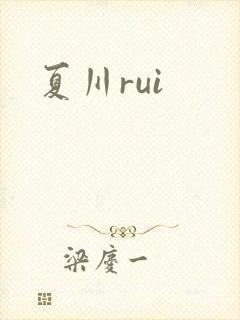 夏川rui
梁庆一